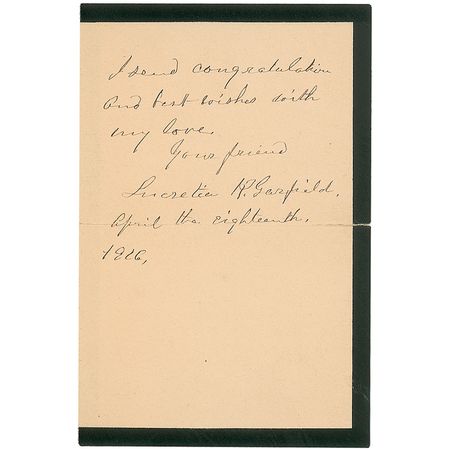 I send congratulation
and best wishes with
my love.
Your friend
Lucretia R. Garfield.
April the eighteenth.
1916,